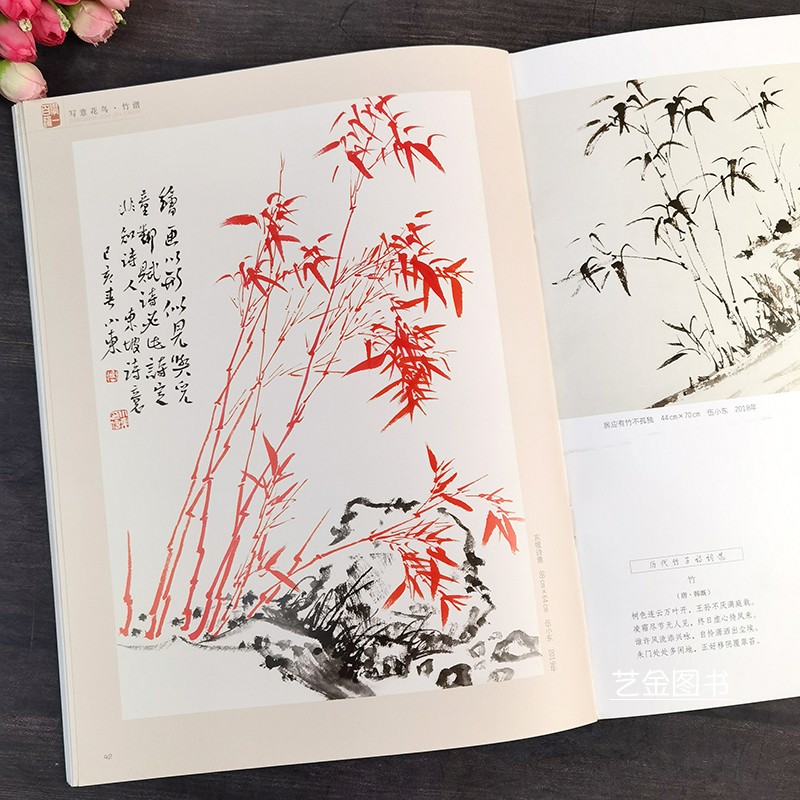 写意花鸟·竹谱
繪画以形似見與兒
童鄰賦詩必此詩定
非知诗人東坡詩意
己亥春小東
东坡诗意 伍小东 2019年
42
居应有竹不孤独 44cm×70cm 伍小东 2018年
历代竹子诗词选
竹
（唐·韩溉）
树色连云万叶开，王孙不厌满庭栽。
凌霜尽节无人见，终日虚心待凤来。
谁许风流添兴咏，自怜潇洒出尘埃。
朱门处处多闲地，正好移阴覆翠苔。
艺金图书